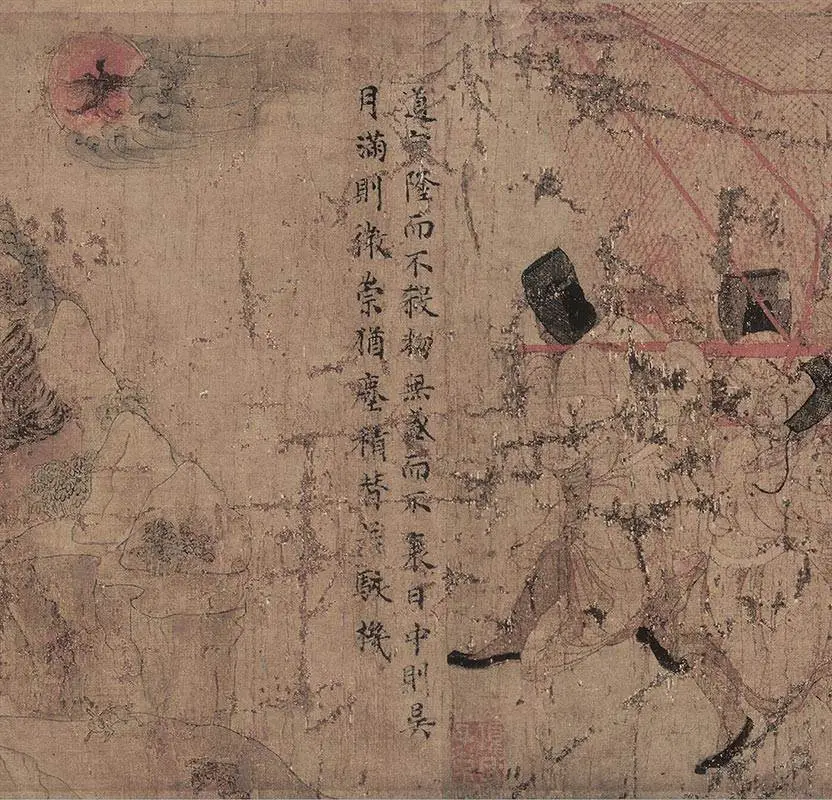 道隆而不殺物無盛而不衰日中則昃
月滿則微崇猶塵積替若駭機